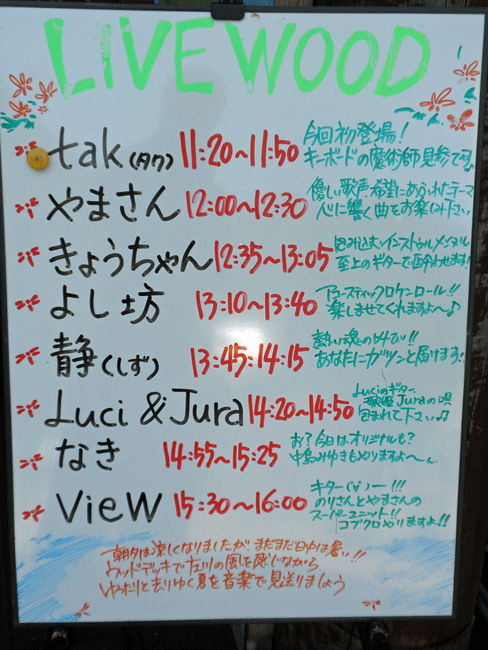 LIVE WOOD
tak(タク) 11:20~11:50 今回初登場!
キーボードの魔術師見参です♪
やまさん 12:00~12:30 優しい歌声、希望にあふれたテーマ
心に響く曲をお楽しみ下さい
きょうちゃん 12:35~13:05 包み込むインストゥルメンタル
至上のギターで酔わせます!
よし坊 13:10~13:40 アコースティックロケンロール!!
楽しませてくれますよ~♪
静(しず) 13:45~14:15 熱い魂の叫び!!
あなたにガツンと届けます!
Luci & Jura 14:20~14:50 Luciのギター
歌姫Juraの唄
包まれて下さい♫
なき 14:55~15:25 お?今日はオリジナルも?
中島みゆきもやりますよ~
VieW 15:30~16:00 キター(∀)ー!!!
のりさんとやまさんの
スーパーユニット!!
コブクロやりますよ!!
朝夕は涼しくなりましたが、まだまだ日中は暑い!!
ウッドデッキで左川の風を感じながら
ゆったりと去りゆく夏を音楽で見送りましょう